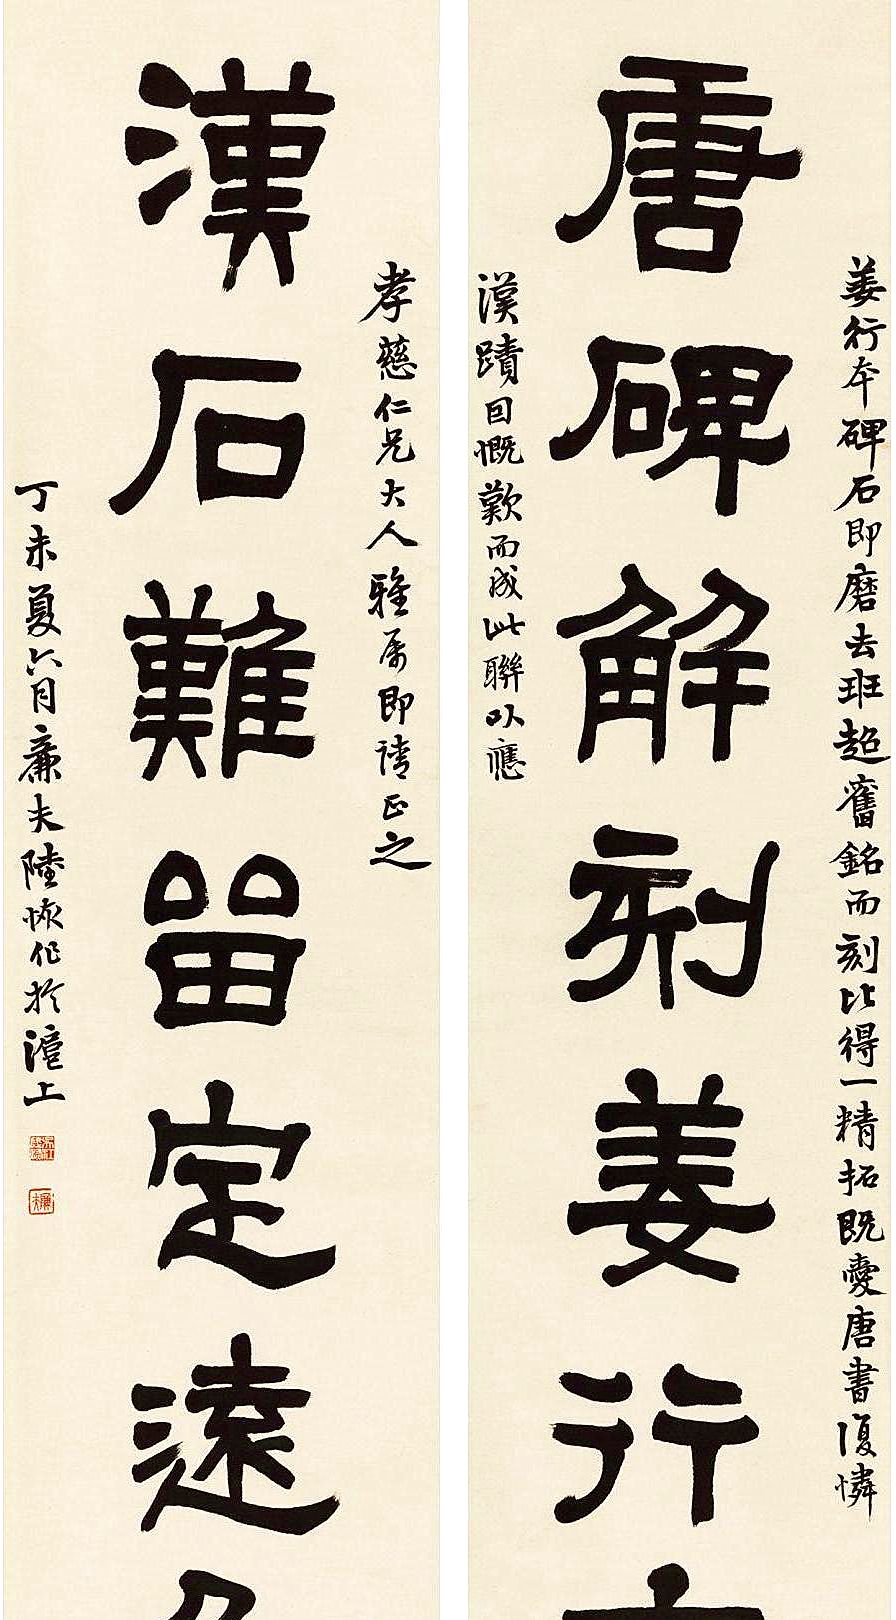 姜行本碑石即磨去班超舊銘而刻比得一精拓既愛唐書復憐
唐碑解刻姜行
漢蹟因慨歎而成此聯以應
孝慈仁兄大人雅屬即請正之
漢石難留定遠
丁未夏六月廉夫陸恢作於滬上